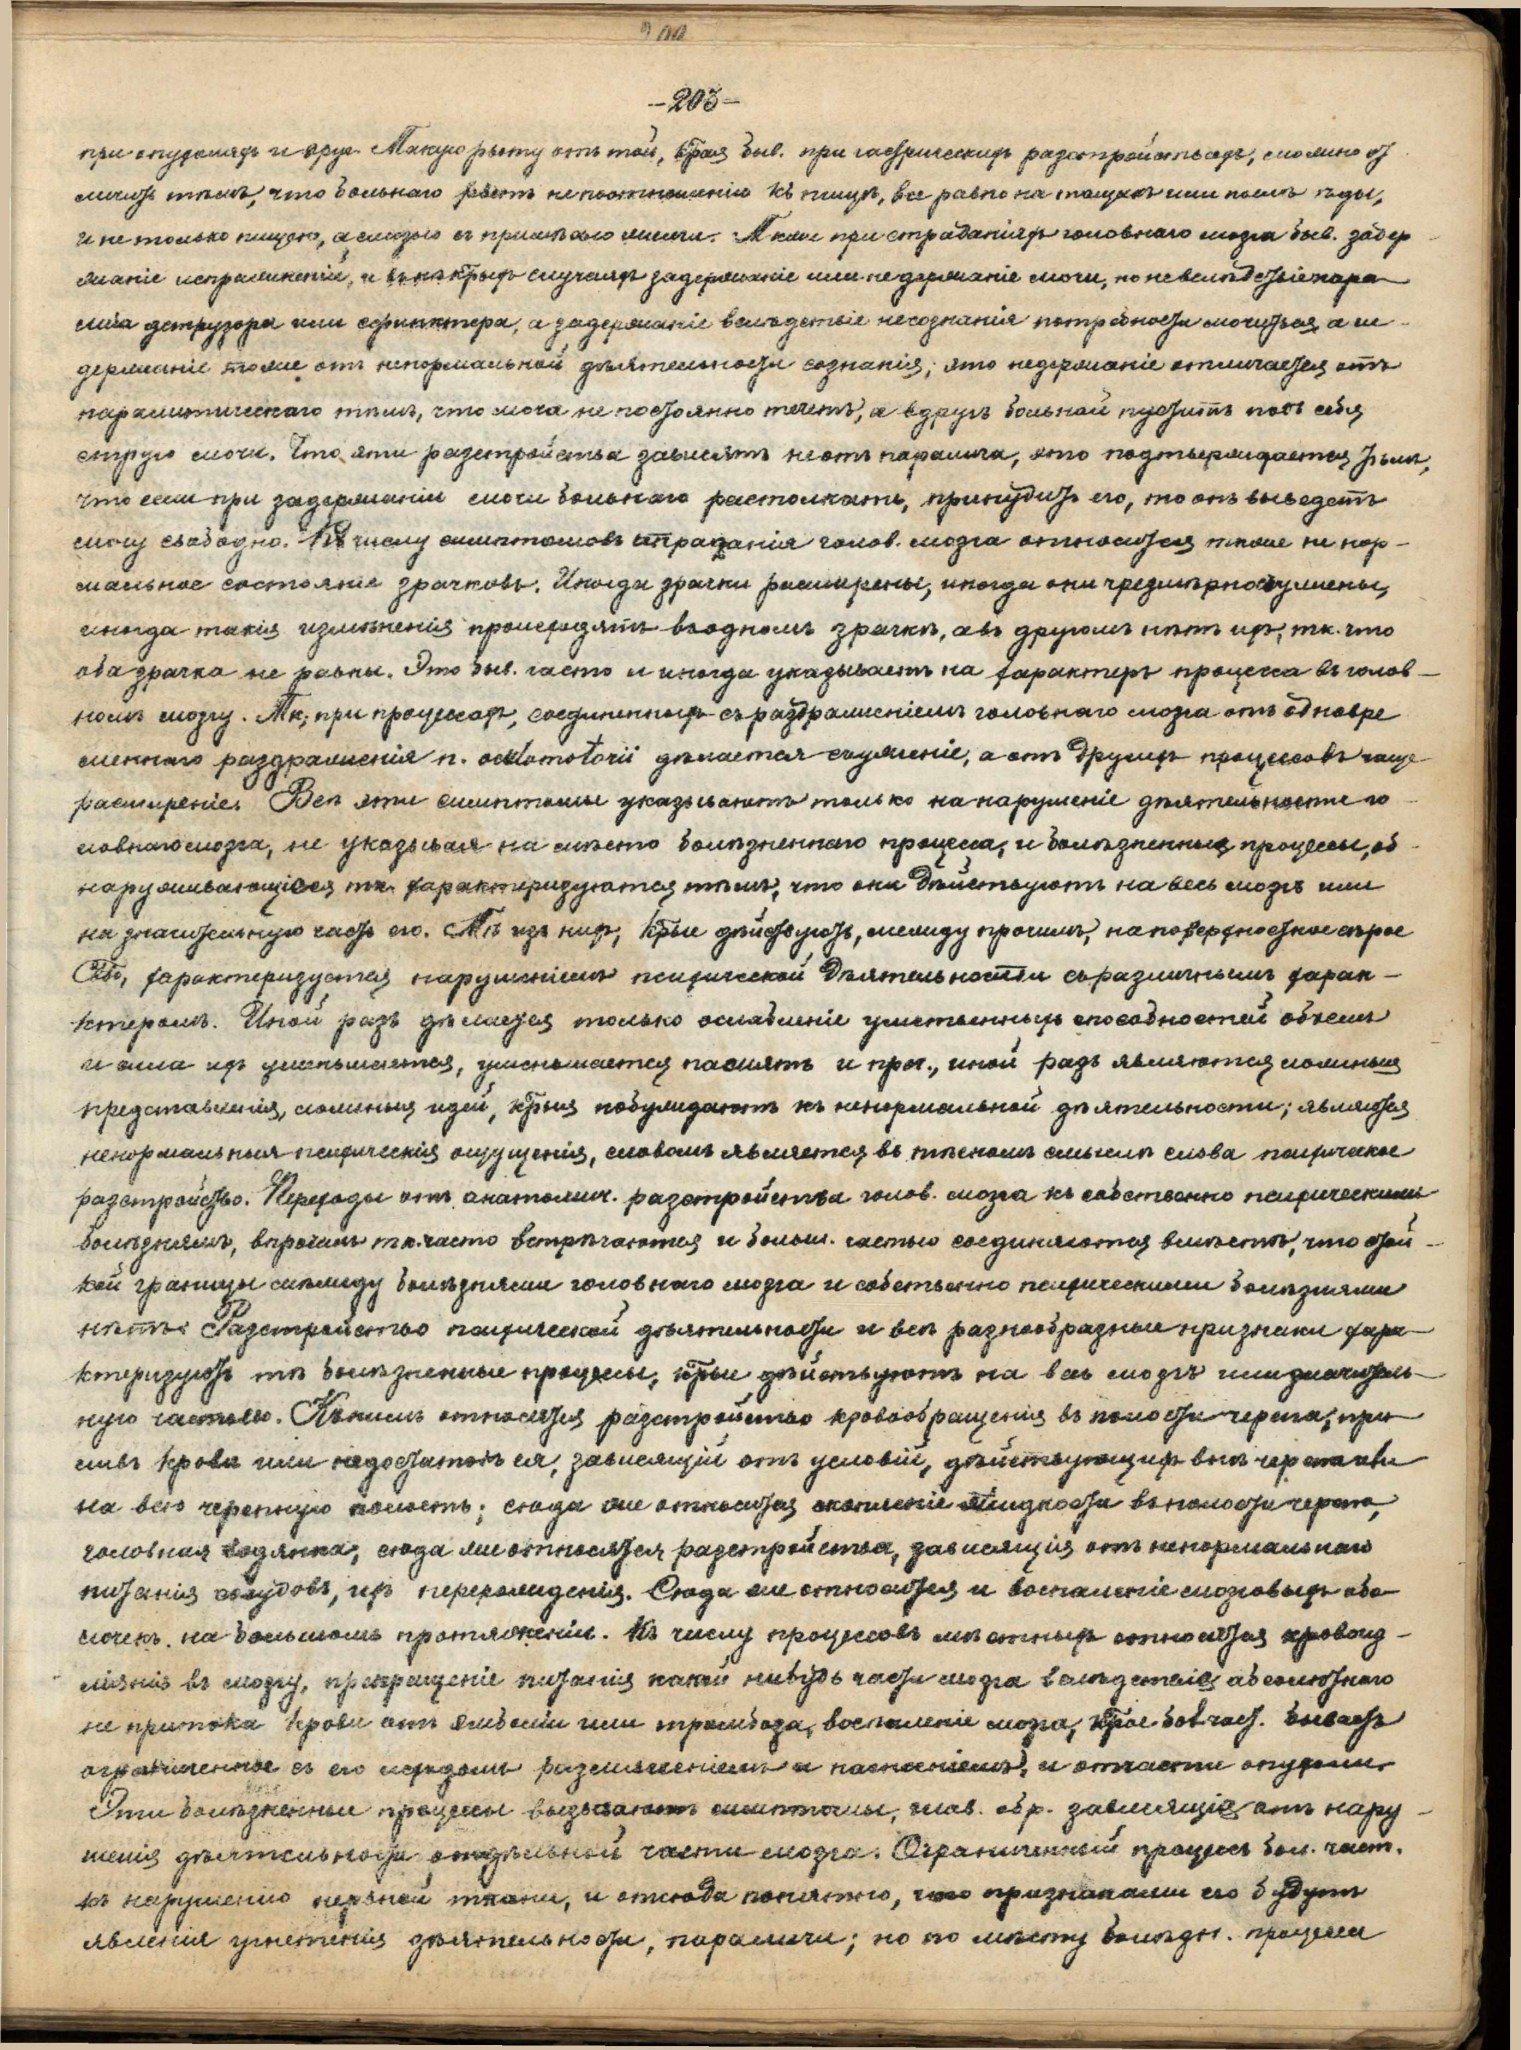 -203-
при опухоляхъ и друг. Такую рвоту отъ той, ктрая быв. при гастрическихъ разстройствахъ, можно от
личить тѣмъ, что больнаго рветъ не по отношенію къ пищѣ, все равно на тощакъ или послѣ ѣды,
и не только пищею, а слизью съ примѣсью желчи. Ткже при страданіяхъ головнаго мозга быв. задер
жаніе испражненій, и въ нѣктрыхъ случаяхъ задержаніе или недержаніе мочи, но не вслѣдствіе пара
лича детрузора или сфинктера, а задержаніе вслѣдствіе несознанія потребности мочиться, а не-
держаніе тоже отъ ненормальной дѣятельности сознанія; это недержаніе отличается отъ
паралитическаго тѣмъ, что моча не постоянно течетъ, а вдругъ больной пуститъ подъ себя
струю мочи. Что эти разстройства зависятъ не отъ паралича, это подтверждается тѣмъ,
что если при задержаніи мочи больнаго растолкать, принудить его, то онъ выведетъ
мочу свободно. Къ числу симптомовъ страданія голов. мозга относится ткже не нор-
мальное состояніе зрачковъ. Иногда зрачки расширены, иногда они чрезмѣрно съужены,
иногда такія измѣненія происходятъ въ одномъ зрачкѣ, а въ другомъ нѣтъ ихъ, тк. что
оба зрачка не равны. Это быв. часто и иногда указываетъ на характеръ процесса въ голов-
номъ мозгу. Тк, при процессахъ, соединенныхъ съ раздраженіемъ головнаго мозга отъ одновре
меннаго раздраженія n. oculomotorii дѣлается съуженіе, а отъ другихъ процессовъ чаще
расширеніе. Всѣ эти симптомы указываютъ только на нарушеніе дѣятельности го-
ловнаго мозга, не указывая на мѣсто болѣзненнаго процесса, и болѣзненные процессы, об-
наруживающіеся тк. характеризуются тѣмъ, что они дѣйствуютъ на весь мозгъ или
на значительную часть его. Тѣ изъ нихъ, ктрые дѣйствуютъ, между прочимъ, на поверхностное сѣрое
характеризуется нарушеніемъ психической дѣятельности съ различнымъ харак-
ктеромъ. Иной разъ дѣлается только ослабленіе умственныхъ способностей объемъ
и сила ихъ уменьшается, уменьшается память и проч., иной разъ являются ложныя
представленія, ложныя идеи, ктрыя побуждаютъ къ ненормальной дѣятельности; являются
ненормальныя психическія ощущенія, словомъ является въ тѣсномъ смыслѣ слова психическое
разстройство. Переходы отъ анатомич. разстройства голов. мозга къ собственно психическимъ
болѣзнямъ, впрочемъ тк. часто встрѣчаются и больш. частью соединяются вмѣстѣ, что стой-
кой границы между болѣзнями головнаго мозга и собственно психическими болѣзнями
нѣтъ. Разстройство психической дѣятельности и всѣ разнообразные признаки хара-
ктеризуютъ тѣ болѣзненные процессы, ктрые дѣйствуютъ на весь мозгъ или значитель-
ную частью. Къ нимъ относятся разстройство кровообращенія въ полости черепа, при
ливъ крови или недостатокъ ея, зависящій отъ условій, дѣйствующихъ внѣ черепа или
на всю черепную полость; сюда же относится скопленіе жидкости въ полости черепа,
головная водянка, сюда же относятся разстройства, зависящія отъ ненормальнаго
питанія сосудовъ, ихъ перерожденія. Сюда же относится и воспаленіе мозговыхъ обо-
лочекъ на большомъ протяженіи. Къ числу процессовъ мѣстныхъ относятся кровоиз-
ліянія въ мозгу, прекращеніе питанія какой нибудь части мозга вслѣдствіе абсолютнаго
не притока крови отъ эмболіи или тромбоза, воспаленіе мозга, ктрое бол. част. бываетъ
ограниченное съ его исходомъ размягченіемъ и нагноеніемъ, и отчасти опухоли.
Эти болѣзненные процессы вызываютъ симптомы, глав. обр. зависящіе отъ нару-
шенія дѣятельности отдѣльной части мозга. Ограниченный процессъ бол. част.
къ нарушенію нервной ткани, и отсюда понятно, что признаками его будутъ
явленія угнетенія дѣятельности, параличи; но по мѣсту болѣзн. процесса